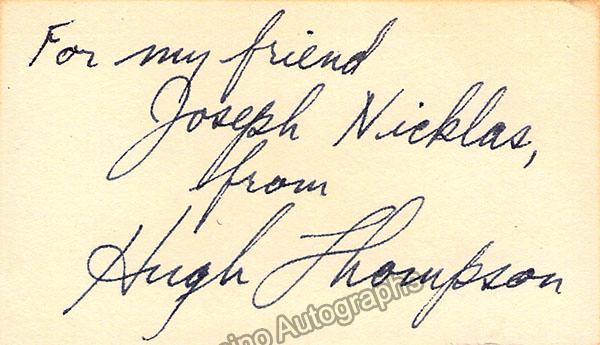 For my friend
Joseph Nicklas,
from
Hugh Thompson
ino Autographs